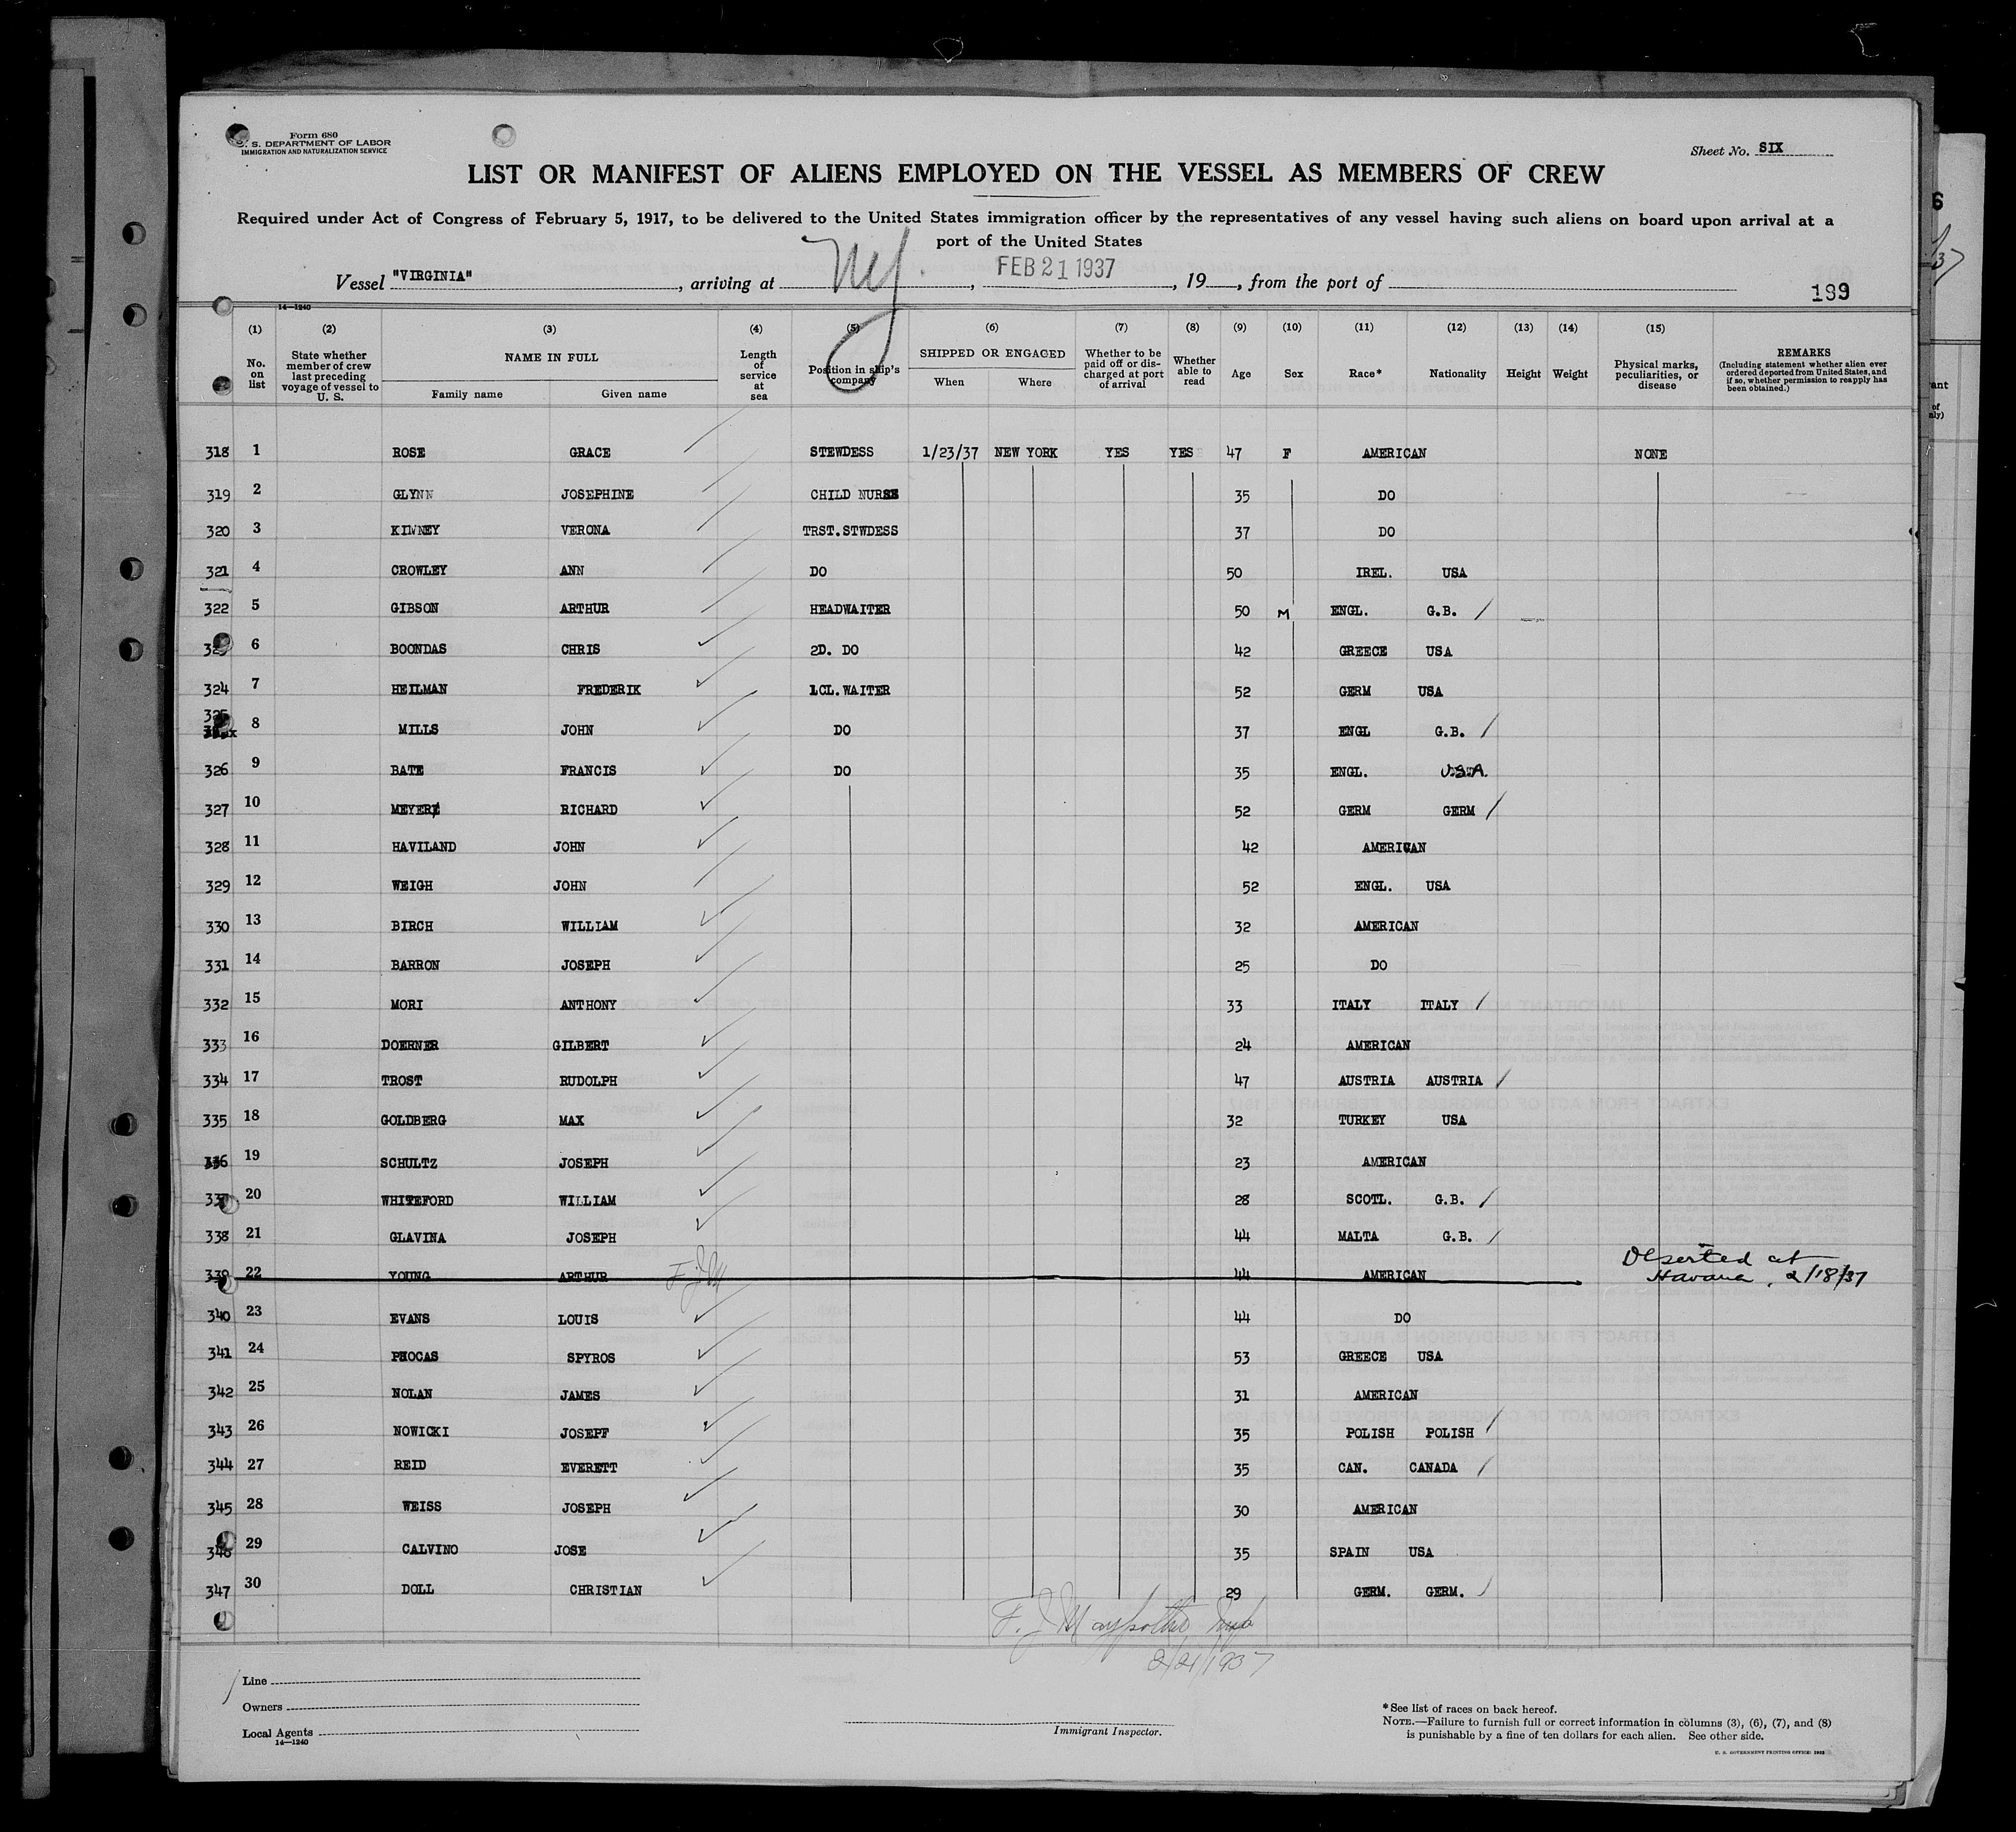 Form 680
U. S. DEPARTMENT OF LABOR
IMMIGRATION AND NATURALIZATION SERVICE
Sheet No. SIX
LIST OR MANIFEST OF ALIENS EMPLOYED ON THE VESSEL AS MEMBERS OF CREW
Required under Act of Congress of February 5, 1917, to be delivered to the United States immigration officer by the representatives of any vessel having such aliens on board upon arrival at a
port of the United States
Vessel "VIRGINIA", arriving at NY., FEB 21 1937, 19, from the port of
199
14—1240
(1) (2) (3) (4) (5) (6) (7) (8) (9) (10) (11) (12) (13) (14) (15)
No. on list
State whether member of crew last preceding voyage of vessel to U. S.
NAME IN FULL
Family name Given name
Length of service at sea
Position in ship's company
SHIPPED OR ENGAGED
When Where
Whether to be paid off or discharged at port of arrival
Whether able to read
Age Sex Race* Nationality Height Weight
Physical marks, peculiarities, or disease
REMARKS
(Including statement whether alien ever ordered deported from United States, and if so, whether permission to reapply has been obtained.)
318 1 ROSE GRACE STEWDESS 1/23/37 NEW YORK YES YES 47 F AMERICAN NONE
319 2 GLYNN JOSEPHINE CHILD NURSE 35 DO
320 3 KINNEY VERONA TRST.STWDESS 37 DO
321 4 CROWLEY ANN DO 50 IREL. USA
322 5 GIBSON ARTHUR HEADWAITER 50 M ENGL. G.B. /
323 6 BOONDAS CHRIS 2D. DO 42 GREECE USA
324 7 HEILMAN FREDERIK 1CL.WAITER 52 GERM USA
325 8 MILLS JOHN DO 37 ENGL G.B. /
326 9 BATE FRANCIS DO 35 ENGL. U.S.A.
327 10 MEYER RICHARD 52 GERM GERM /
328 11 HAVILAND JOHN 42 AMERICAN
329 12 WEIGH JOHN 52 ENGL. USA
330 13 BIRCH WILLIAM 32 AMERICAN
331 14 BARRON JOSEPH 25 DO
332 15 MORI ANTHONY 33 ITALY ITALY /
333 16 DOERNER GILBERT 24 AMERICAN
334 17 TROST RUDOLPH 47 AUSTRIA AUSTRIA /
335 18 GOLDBERG MAX 32 TURKEY USA
336 19 SCHULTZ JOSEPH 23 AMERICAN
337 20 WHITEFORD WILLIAM 28 SCOTL. G.B. /
338 21 GLAVINA JOSEPH 44 MALTA G.B. /
339 22 YOUNG ARTHUR FJM 44 AMERICAN Deserted at
Havana, 2/18/37
340 23 EVANS LOUIS 44 DO
341 24 PHOCAS SPYROS 53 GREECE USA
342 25 NOLAN JAMES 31 AMERICAN
343 26 NOWICKI JOSEPF 35 POLISH POLISH /
344 27 REID EVERETT 35 CAN. CANADA /
345 28 WEISS JOSEPH 30 AMERICAN
346 29 CALVINO JOSE 35 SPAIN USA
347 30 DOLL CHRISTIAN 29 GERM. GERM. /
F. J.
2/21/1937
Line
Owners
Local Agents
14—1240
Immigrant Inspector.
*See list of races on back hereof.
NOTE.—Failure to furnish full or correct information in columns (3), (6), (7), and (8)
is punishable by a fine of ten dollars for each alien. See other side.
U. S. GOVERNMENT PRINTING OFFICE: 1935